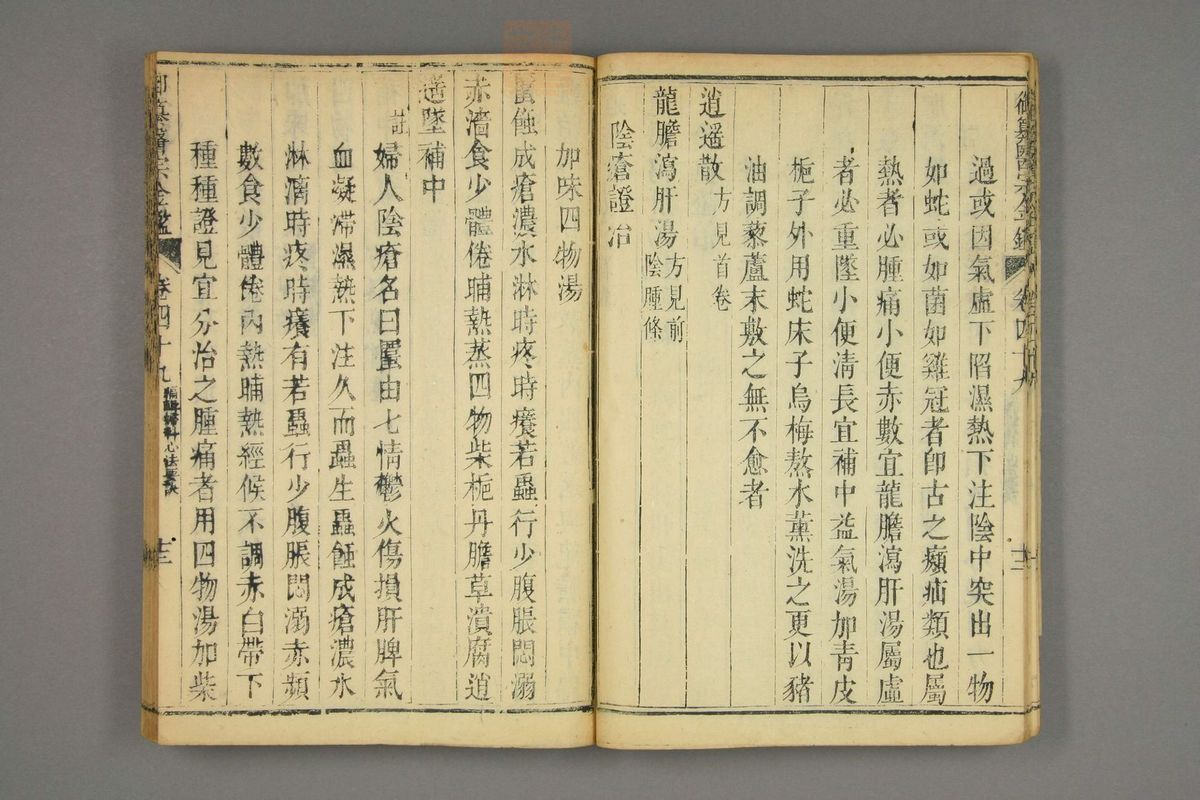 過或因氣虛下陷濕熱下注陰中突出一物
如蛇或如菌如雞冠者卽古之㿗疝類也屬
熱者必腫痛小便赤數宜龍膽瀉肝湯屬虛
者必重墜小便清長宜補中益氣湯加青皮
梔子外用蛇床子烏梅熬水薰洗之更以豬
油調藜蘆末敷之無不愈者
逍遥散方見首卷
龍膽瀉肝湯方見前陰腫條
陰瘡證治
加味四物湯
䘌蝕成瘡濃水淋時疼時癢若蟲行少腹脹悶溺
赤濇食少體倦晡熱蒸四物柴梔丹膽草潰腐逍
遥墜補中
註
婦人陰瘡名曰䘌由七情鬱火傷損肝脾氣
血凝滯濕熱下注久而蟲生蟲蝕成瘡濃水
淋漓時疼時癢有若蟲行少腹脹悶溺赤頻
數食少體倦內熱晡熱經候不調赤白帶下
種種證見宜分治之腫痛者用四物湯加柴
御纂醫宗金鑑 卷四十九 編輯婦科心法要訣 十三